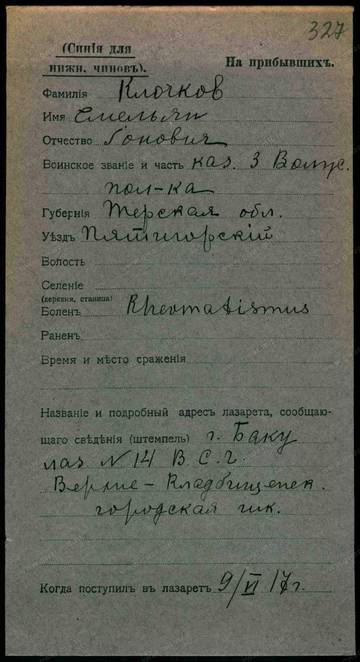 327
(Синія для
нижн. чиновъ).
На прибывшихъ.
Фамилія Клочков
Имя Емельян
Отчество Гонович
Воинское званіе и часть каз. 3 Волг.
пол-ка
Губернія Терская обл.
Уѣздъ Пятигорскій
Волость
Селеніе
(деревня, станица)
Боленъ Rheomatismus
Раненъ
Время и мѣсто сраженія
Названіе и подробный адресъ лазарета, сообщаю-
щаго свѣдѣнія (штемпель) г. Баку
лаз N 14 В.С.Г.
Верхне - Кладбищенск.
городская шк.
Когда поступилъ въ лазаретъ 9/VI 17г.